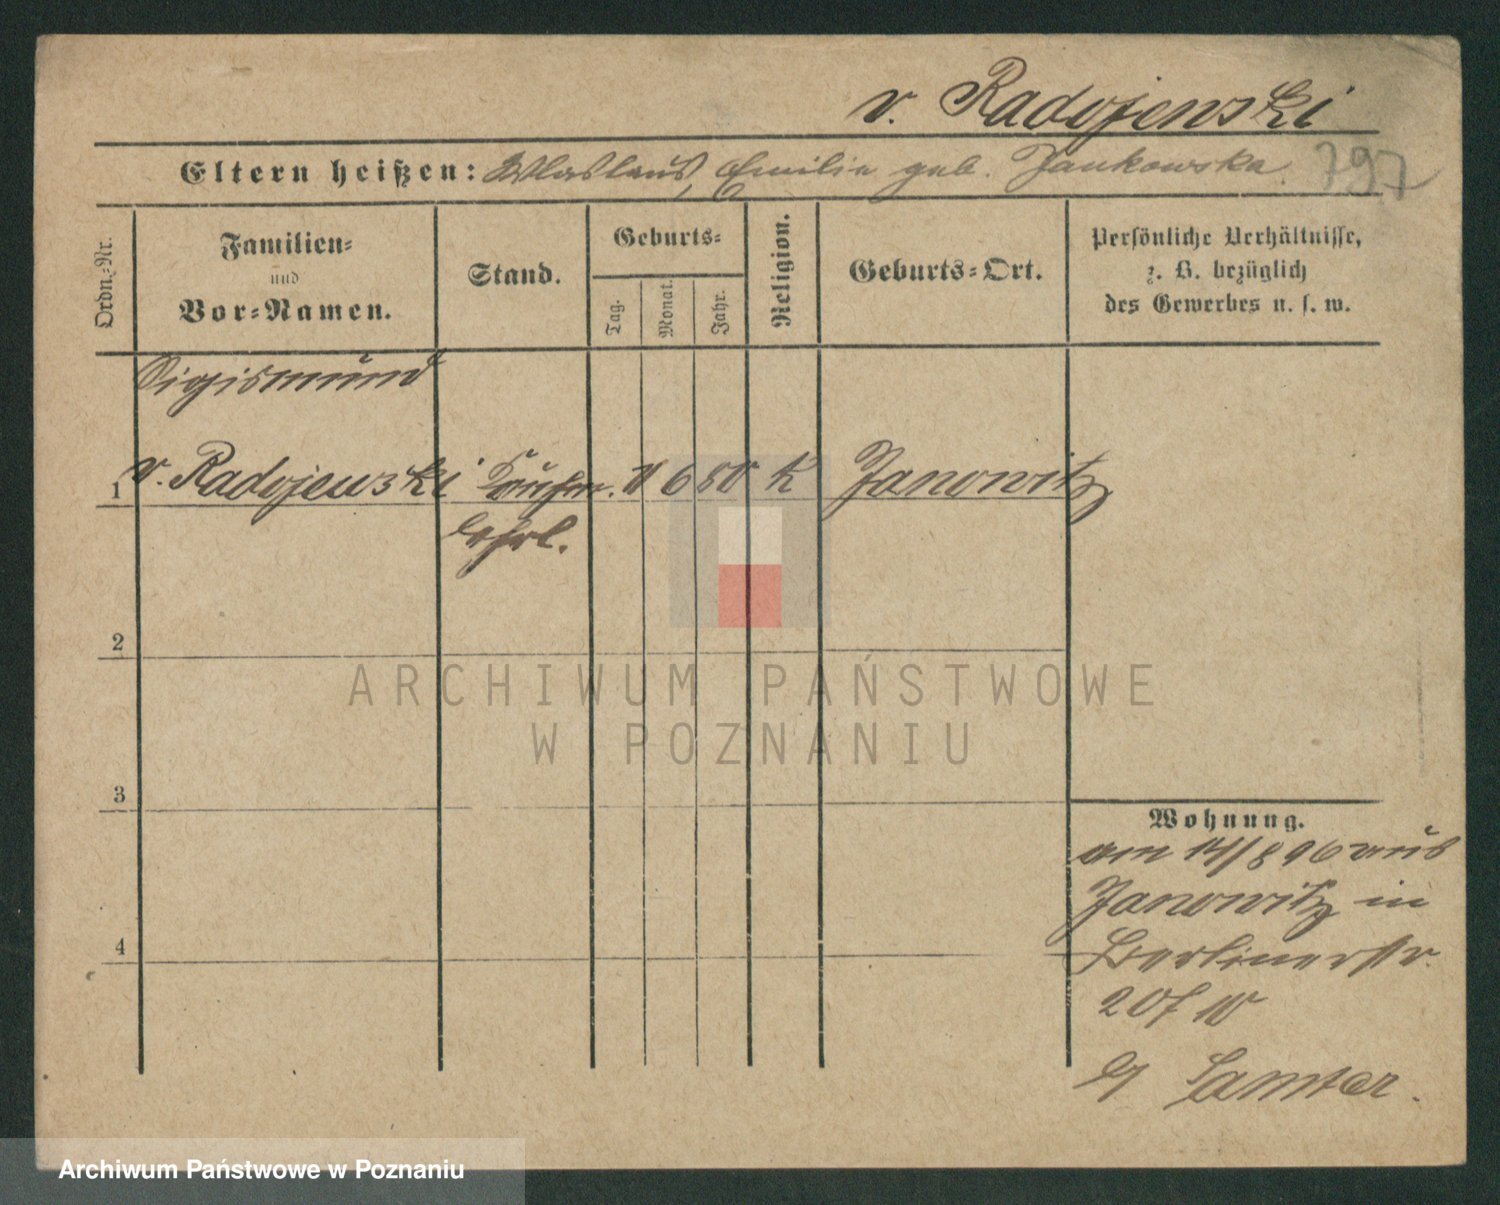 v. Radojewski
Eltern heißen: Wladlaus, Emilie geb. Jankowska. 797
Ordn.-Nr.
Familien-
und
Vor-Namen.
Stand.
Geburts-
Tag.
Monat.
Jahr.
Religion.
Geburts-Ort.
Persönliche Verhältnisse,
z. B. bezüglich
des Gewerbes u. s. w.
Sigismund
1 v. Radojewski Kaufm. 6 80 K Janowitz
Lehrl.
2
3
4
Wohnung.
am 14/8 96 aus
Janowitz in
Berlinerstr.
20
Samter.
ARCHIWUM PAŃSTWOWE
W POZNANIU
Archiwum Państwowe w Poznaniu